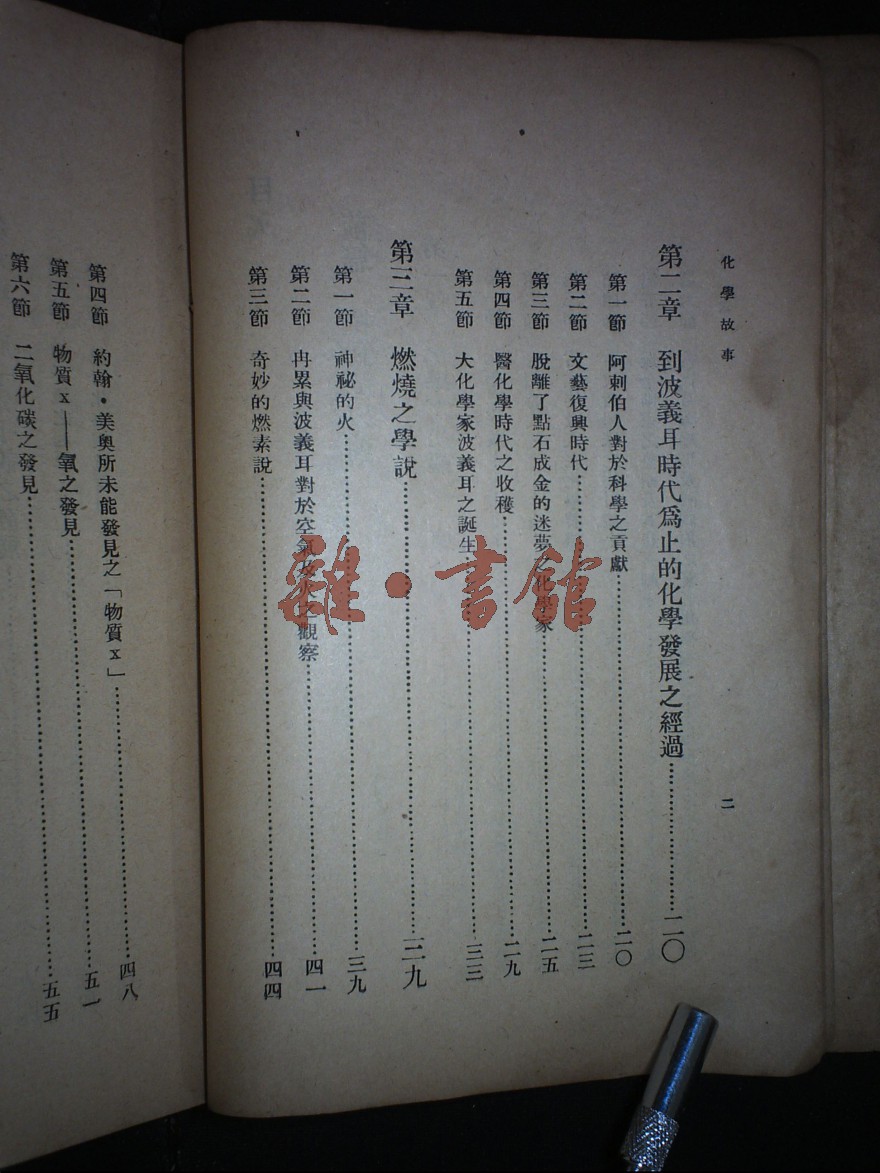 化學故事
二
第二章 到波義耳時代爲止的化學發展之經過…………二〇
第一節 阿剌伯人對於科學之貢獻…………二〇
第二節 文藝復興時代…………二三
第三節 脫離了點石成金的迷夢之化學家…………二五
第四節 醫化學時代之收穫…………二九
第五節 大化學家波義耳之誕生…………三三
第三章 燃燒之學說…………三九
第一節 神祕的火…………三九
第二節 冉累與波義耳對於空氣及火之觀察…………四一
第三節 奇妙的燃素說…………四四
第四節 約翰・美奧所未能發見之「物質x」…………四八
第五節 物質x——氧之發見…………五一
第六節 二氧化碳之發見…………五五
雜・書館